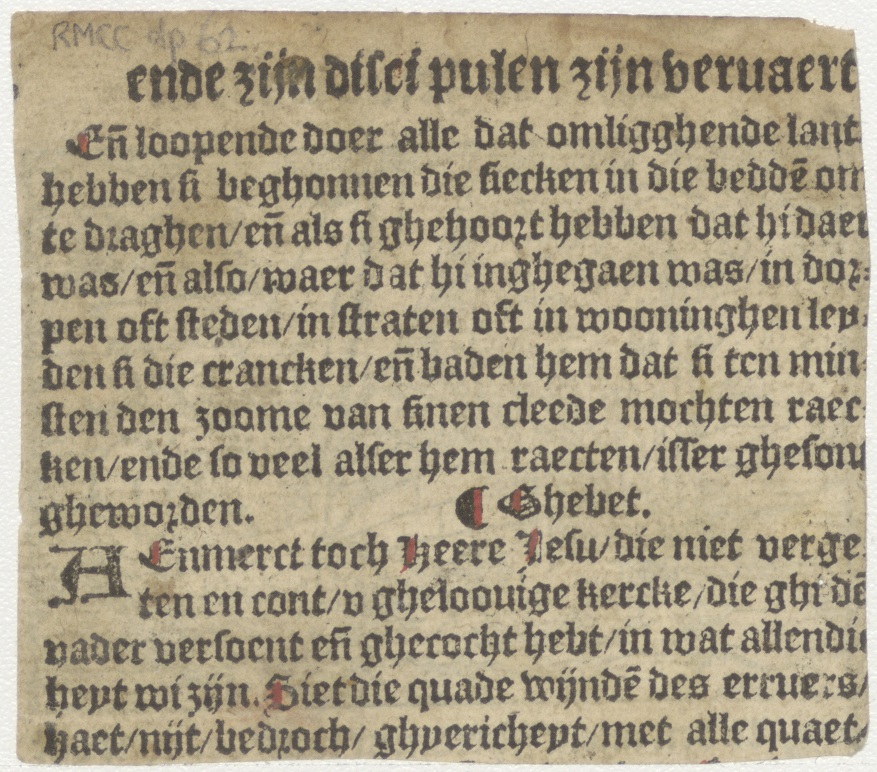 RMCC dp 62.
ende zijn disci pulen zijn veruaert
Eñ loopende doer alle dat omligghende lant
hebben si beghonnen die siecken in die beddē om
te draghen/eñ als si ghehoort hebben dat hi daer
was/eñ also/waer dat hi inghegaen was/in dor⸗
pen oft steden/in straten oft in wooninghen ley⸗
den si die crancken/eñ baden hem dat si ten min⸗
sten den zoome van sinen cleede mochten raec⸗
ken/ende so veel alser hem raecten/isser ghesont
gheworden. ¶ Ghebet.
AEnmerct toch Heere Jesu/die niet verge
ten en cont/v gheloouige kercke/die ghi dē
vader versoent eñ ghecocht hebt/in wat allendi
heyt wi zijn. Siet die quade wijndē des erruers/
haet/nijt/bedroch/ ghyericheyt/met alle quaet⸗